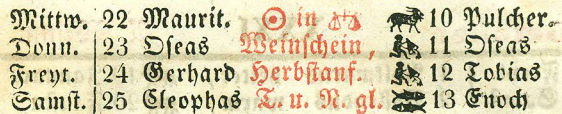 Mittw. 22 Maurit. ☉ in ♎ ♑ 10 Pulcher.
Donn. 23 Oseas Weinschein, ♒ 11 Oseas
Freyt. 24 Gerhard Herbstanf. ♒ 12 Tobias
Samst. 25 Cleophas T. u. N. gl. ♓ 13 Enoch